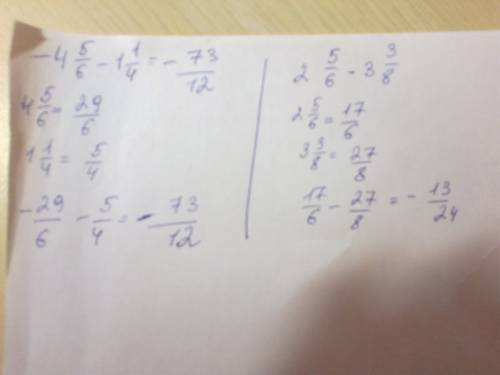 -4 5/6 - 1 1/4 = - 73/12
4 5/6 = 29/6
1 1/4 = 5/4
-29/6 - 5/4 = - 73/12
2 5/6 - 3 3/8
2 5/6 = 17/6
3 3/8 = 27/8
17/6 - 27/8 = - 13/24